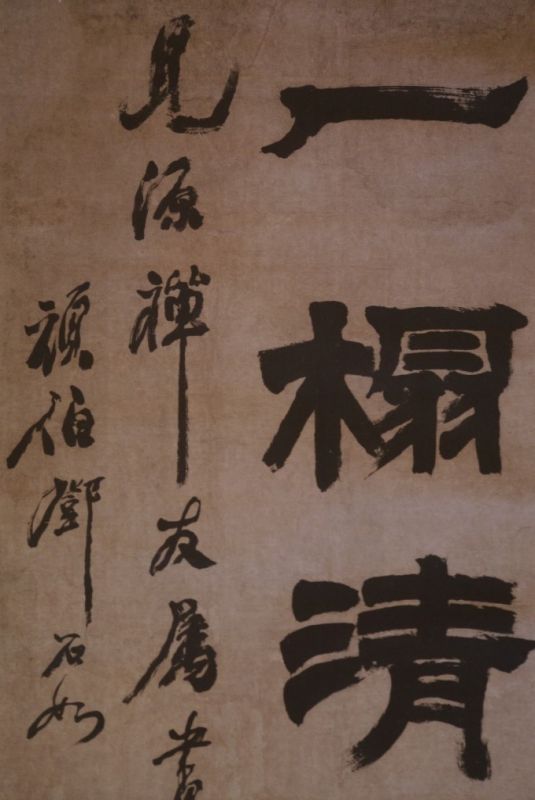 一榻清
見源禪友屬書
頑伯鄧石如